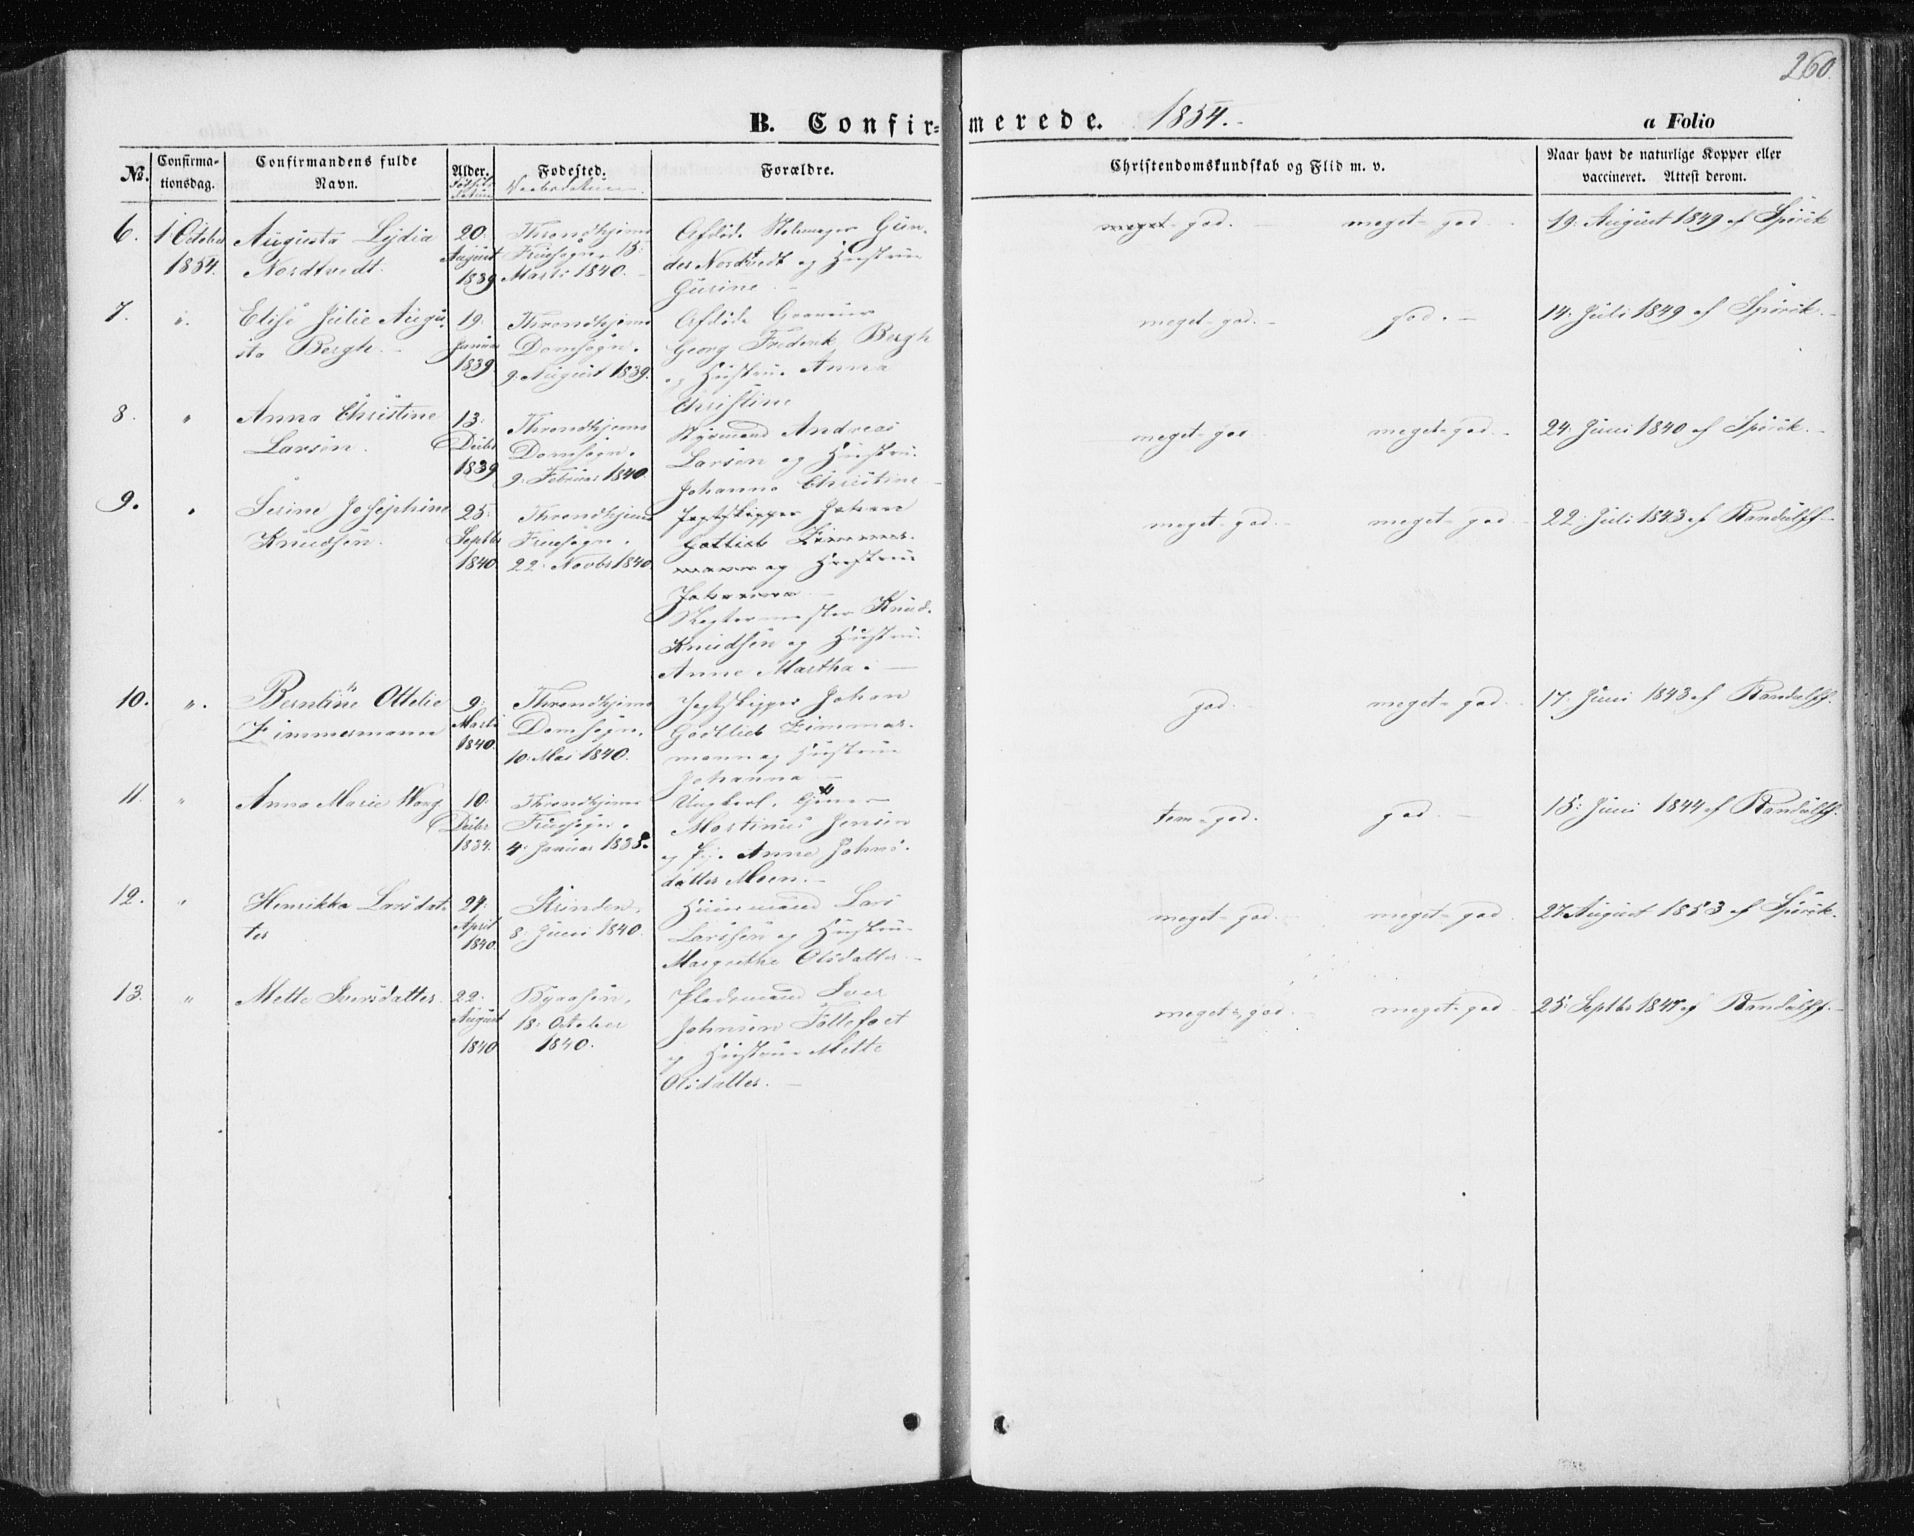 260.
B. Confir= merede. 1854.
a Folio
No. Confirma-tionsdag. Confirmandens fulde Navn. Alder. Fødested. Forældre. Christendomskundskab og Flid m. v. Naar havt de naturlige Kopper eller vaccineret. Attest derom.
6. 1 October Augusta Lydia 20: Throndhjems Afdøde Stolemager Gun- meget-god. meget-god. 19. August 1849 af Spörck
1854. Nordtvedt. August Fruesogn. 15: der Nordtvedt og Hustrue
1839 Marts 1840. Gurine.
7. " Elise Julie Augu- 19: Throndhjems Afdøde Graveur meget-god. god. 14. Juli 1849 af Spörck.
sta Bergh. Januar Domsogn. Georg Frederik Bergh
1839 9. August 1839. og Hustru Anna
Christine
8. " Anna Christine 13: Throndhjems Styrmand Andreas meget-god. meget-god. 24. Juni 1840 af Spörck.
Larsen. Decbr Domsogn. Larsen og Hustru
1839 9. Februar 1840. Johanna Christine
9. " Serine Josephine 25: Throndhjems Jegtskipper Johan meget-god. meget-god. 22. Juli 1843 af Randulff.
Knudsen. Septbr Fruesogn. Gotlieb Zimmer-
1840. 22. Novbr 1840. mann og Hustrue
Johanna
Knud
Knudsen og Hustru
Anne Martha.
10. " Berntine Ottelie 9: Throndhjems Jegtskipper Johan god. meget-god. 17. Juni 1843 af Randulff.
Zimmermann Marts Domsogn. Godtlieb Zimmer-
1840. 10. Mai 1840. mann og Hustrue
Johanna
11. " Anna Marie Wang 10: Throndhjems Ungkarl. meget tem-god. god. 15: Juni 1844 af Randulff.
Decbr Fruesogn. Martinus Jensen
1834. 4. Januar 1835. og Pig. Anne Johns-
datter Moen.
12. " Henrikka Larsdat- 24: Strinden. Huusmand Lars meget-god. meget-god. 27 August 1853 af Spörck.
ter April 8. Juni 1840. Larssen og Hustrue
1840. Margrethe Olsdatter.
13. " Mette Iversdatter. 22: Byaasen. Pladsmand Iver meget-god. meget-god. 25: Septbr af Randulff.
August 18: October Johnsen Fallefoet
1840 1840. og Hustrue Mette
Olsdatter.